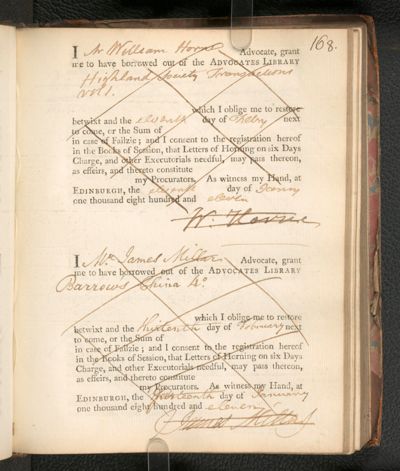 168.
I Mr William Horne Advocate, grant
me to have borrowed out of the ADVOCATES LIBRARY
Highland Society Transactions
Vol 1.
which I oblige me to restore
betwixt and the eleventh day of Febry next
to come, or the Sum of
in case of Failzie; and I consent to the registration hereof
in the Books of Session, that Letters of Horning on six Days
Charge, and other Executorials needful, may pass thereon,
as effeirs, and thereto constitute
my Procurators. As witness my Hand, at
EDINBURGH, the eleventh day of Janry
one thousand eight hundred and eleven
W. Horne
I Mr James Millar Advocate, grant
me to have borrowed out of the ADVOCATES LIBRARY
Barrows China 4o.
which I oblige me to restore
betwixt and the thirteenth day of February next
to come, or the Sum of
in case of Failzie; and I consent to the registration hereof
in the Books of Session, that Letters of Horning on six Days
Charge, and other Executorials needful, may pass thereon,
as effeirs, and thereto constitute
my Procurators. As witness my Hand, at
EDINBURGH, the thirteenth day of January
one thousand eight hundred and eleven
James Millar